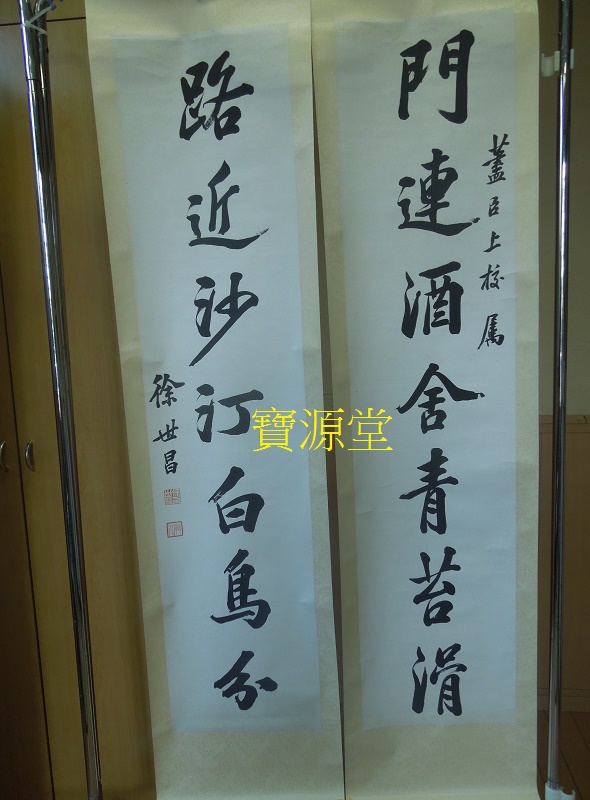 門連酒舍青苔滑
藎臣上校属
路近沙汀白鳥分
徐世昌
寶源堂